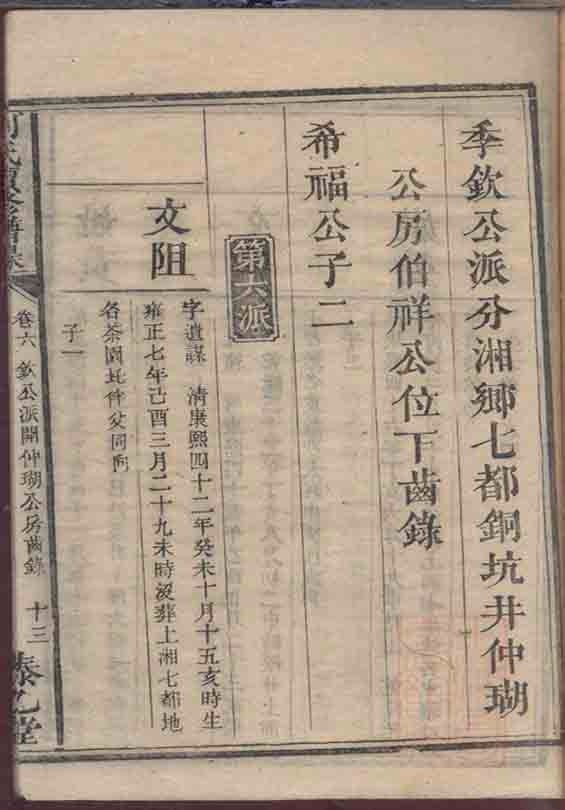 季欽公派分湘鄉七都銅坑井仲瑚
公房伯祥公位下齒錄
希福公子二
第六派
文阻
字遺謀 清康熙四十二年癸未十月十五亥時生
雍正七年己酉三月二十九未時沒葬上湘七都地
名茶園托件父同向
子一
卷六 欽公派開仲瑚公房齒錄 十三